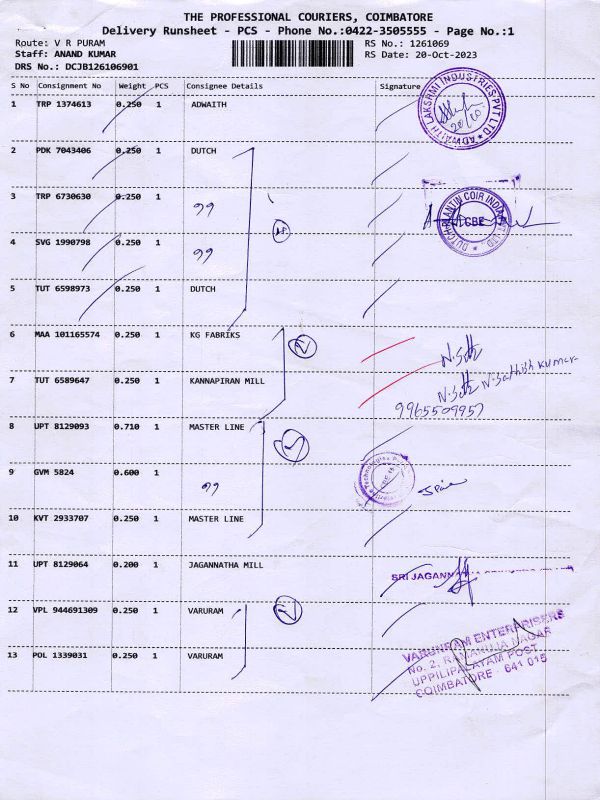 THE PROFESSIONAL COURIERS, COIMBATORE
Delivery Runsheet - PCS - Phone No.:0422-3505555 - Page No.:1
Route: V R PURAM RS No.: 1261069
Staff: ANAND KUMAR RS Date: 20-Oct-2023
DRS No.: DCJB126106901
S No Consignment No Weight PCS Consignee Details Signature
1 TRP 1374613 0.250 1 ADWAITH
ADWAITH LAKSHMI INDUSTRIES PVT LTD
2 PDK 7043406 0.250 1 DUTCH
3 TRP 6730630 0.250 1 ,,
DUTCH PLANTIN COIR INDIA PVT LTD.
CBE
4 SVG 1990798 0.250 1 ,,
5 TUT 6598973 0.250 1 DUTCH
6 MAA 101165574 0.250 1 KG FABRIKS
2
7 TUT 6589647 0.250 1 KANNAPIRAN MILL
N. Sathish Kumar
9965509957
8 UPT 8129093 0.710 1 MASTER LINE
9 GVM 5824 0.600 1 ,,
10 KVT 2933707 0.250 1 MASTER LINE
11 UPT 8129064 0.200 1 JAGANNATHA MILL
SRI JAGANN
12 VPL 944691309 0.250 1 VARURAM
13 POL 1339031 0.250 1 VARURAM
VARUNRAM ENTERPRISERS
No. 2, RAMANUJA NAGAR
UPPILIPALAYAM POST
COIMBATORE - 641 015